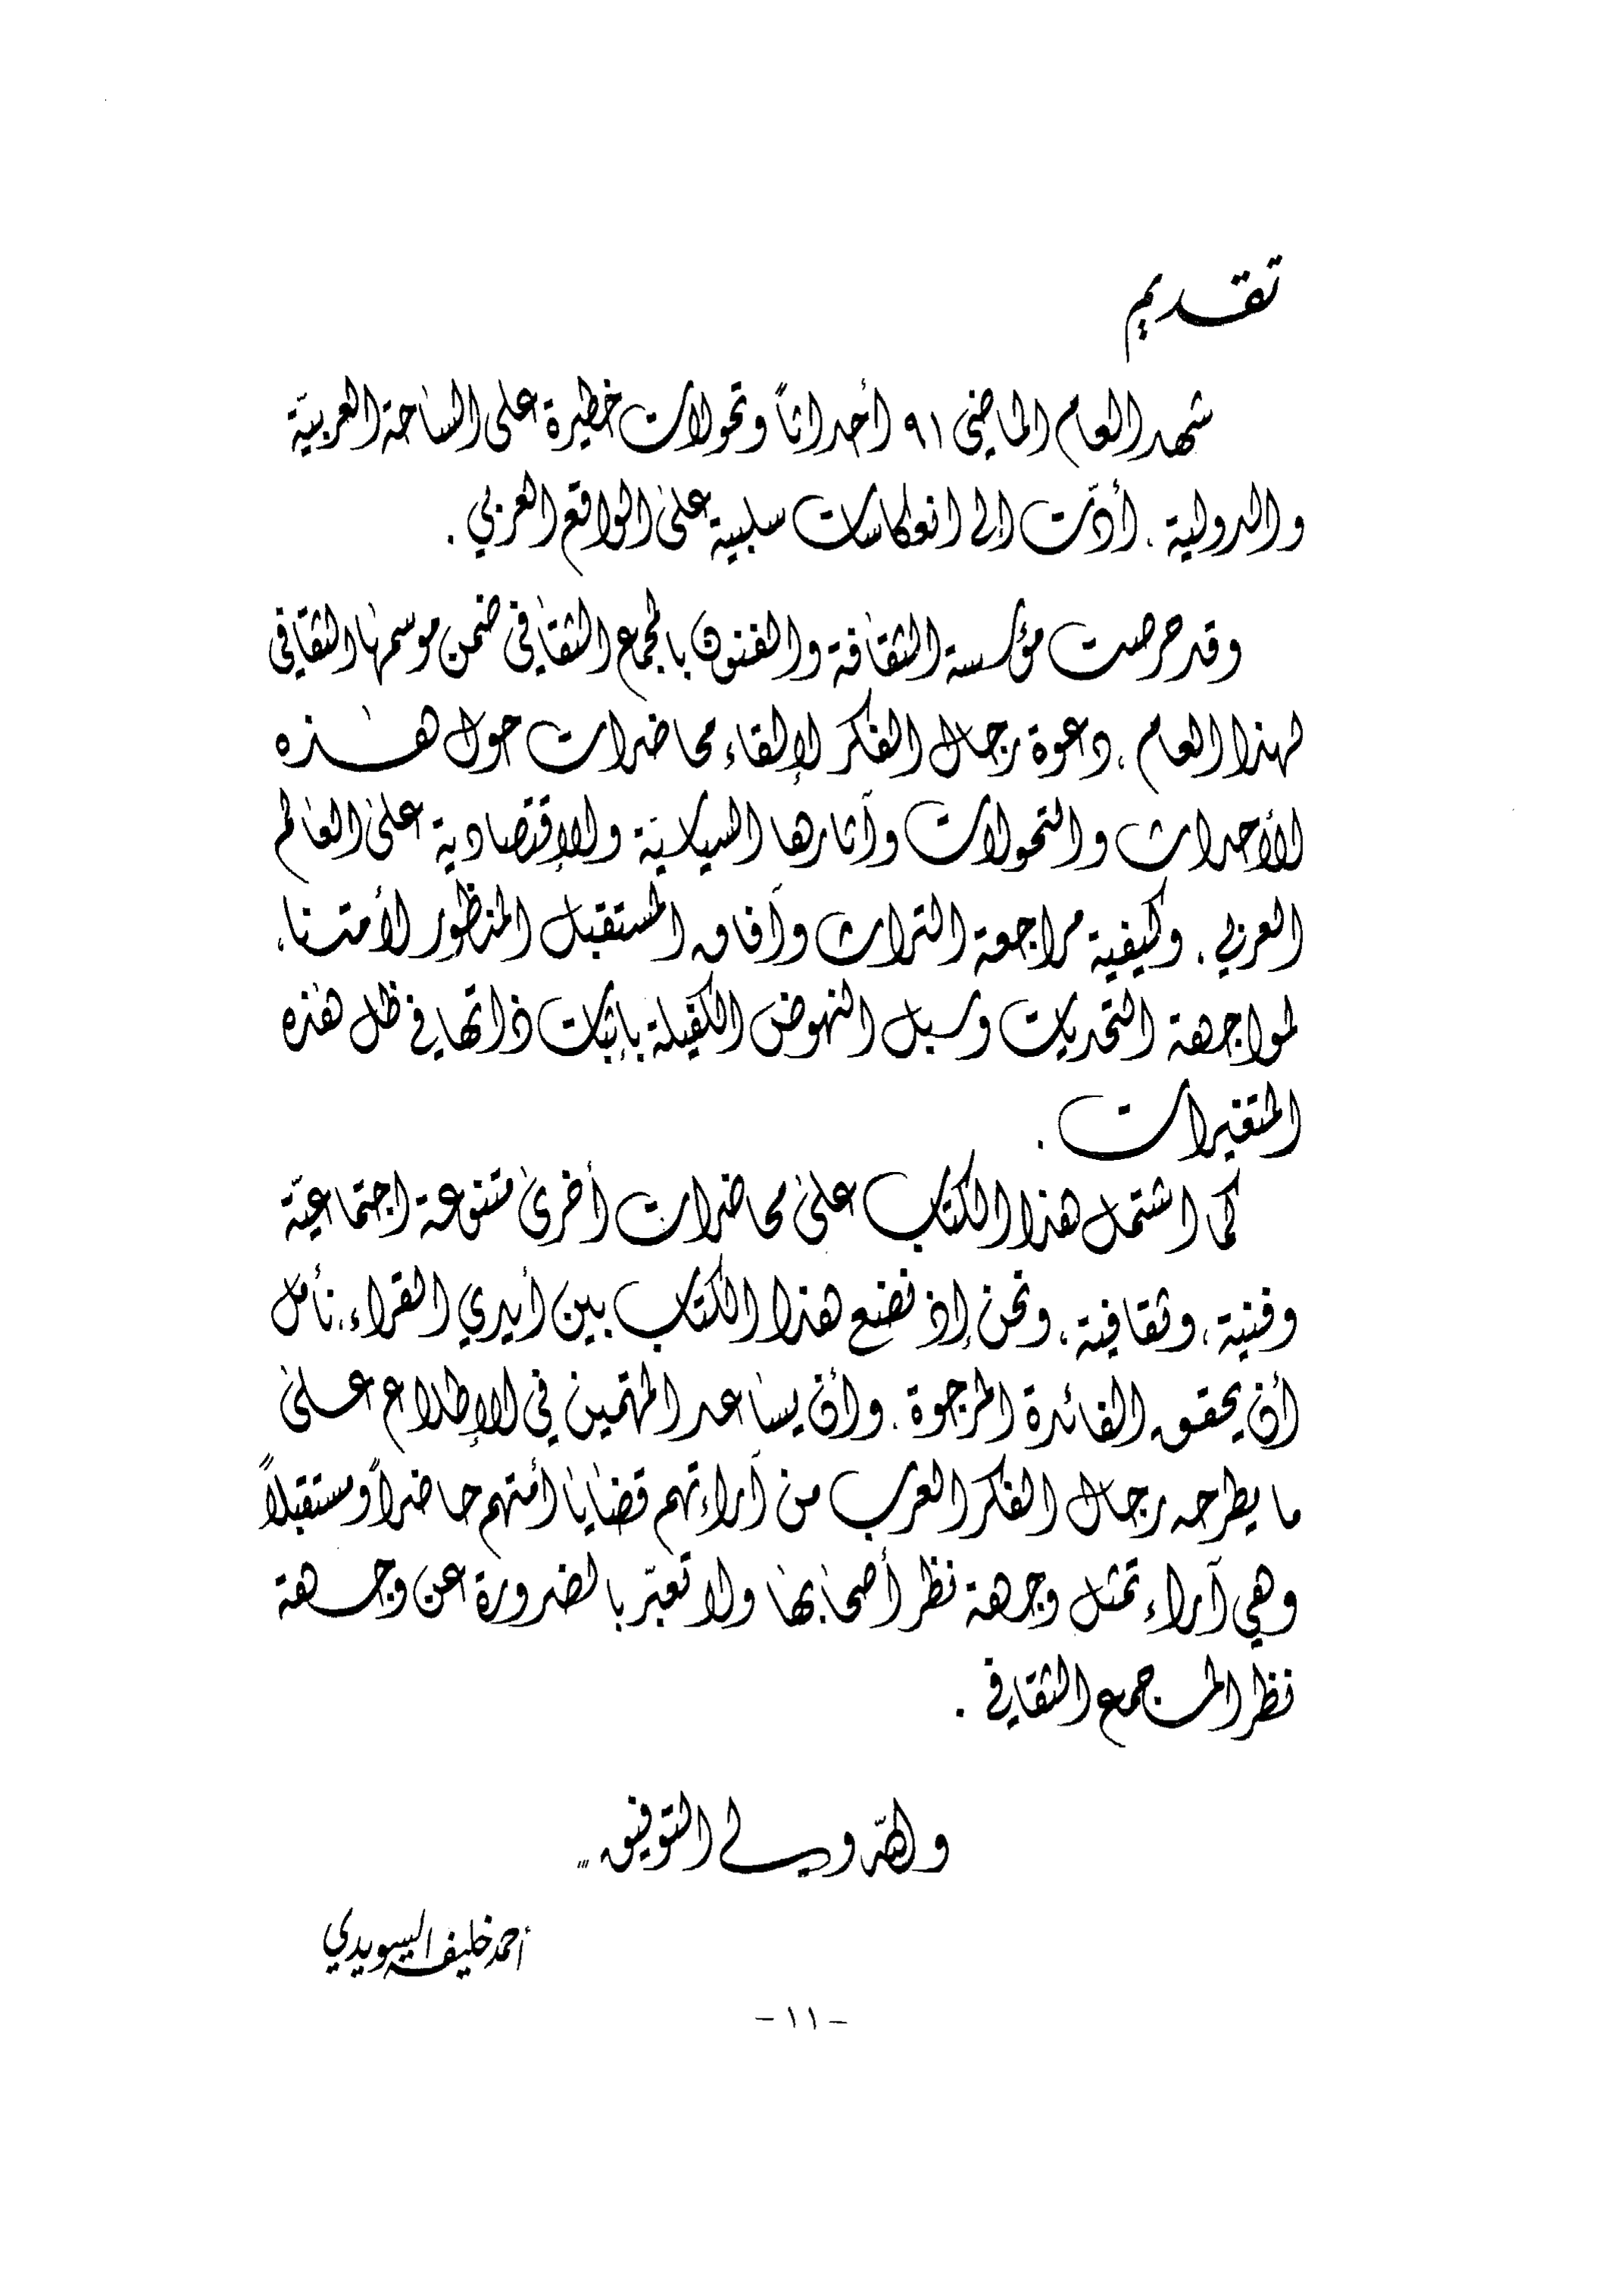 تقديم
شهد العام الماضي ٩١ أحداثاً وتحولات خطيرة على الساحة العربيّة
والدولية ، أدّت إلى انعكاسات سلبية على الواقع العربي .
وقد حرصت مؤسسة الثقافة والفنون بالمجمع الثقافي ضمن موسمها الثقافي
لهذا العام ، دعوة رجال الفكر لإلقاء محاضرات حول هذه
الأحداث والتحولات وآثارها السياسيّة والإقتصادية على العالم
العربي ، وكيفية مراجعة التراث وآفاق المستقبل المنظور لأمتنا ،
لمواجهة التحديات وسبل النهوض الكفيلة بإثبات ذاتها في ظل هذه
المتغيرات .
كما اشتمل هذا الكتاب على محاضرات أخرى متنوعة اجتماعيّة
وفنية ، وثقافية ، ونحن إذ نضع هذا الكتاب بين أيدي القراء ، نأمل
أن يحقق الفائدة المرجوة ، وأن يساعد المهتمين في الإطلاع على
ما يطرحه رجال الفكر العرب من آراء تهم قضايا أمتهم حاضراً ومستقبلاً
وهي آراء تمثل وجهة نظر أصحابها ولا تعبّر بالضرورة عن وجهة
نظر المجمع الثقافي .
والله ولي التوفيق ,,,
أحمد خليفة السويدي
- ١١ -